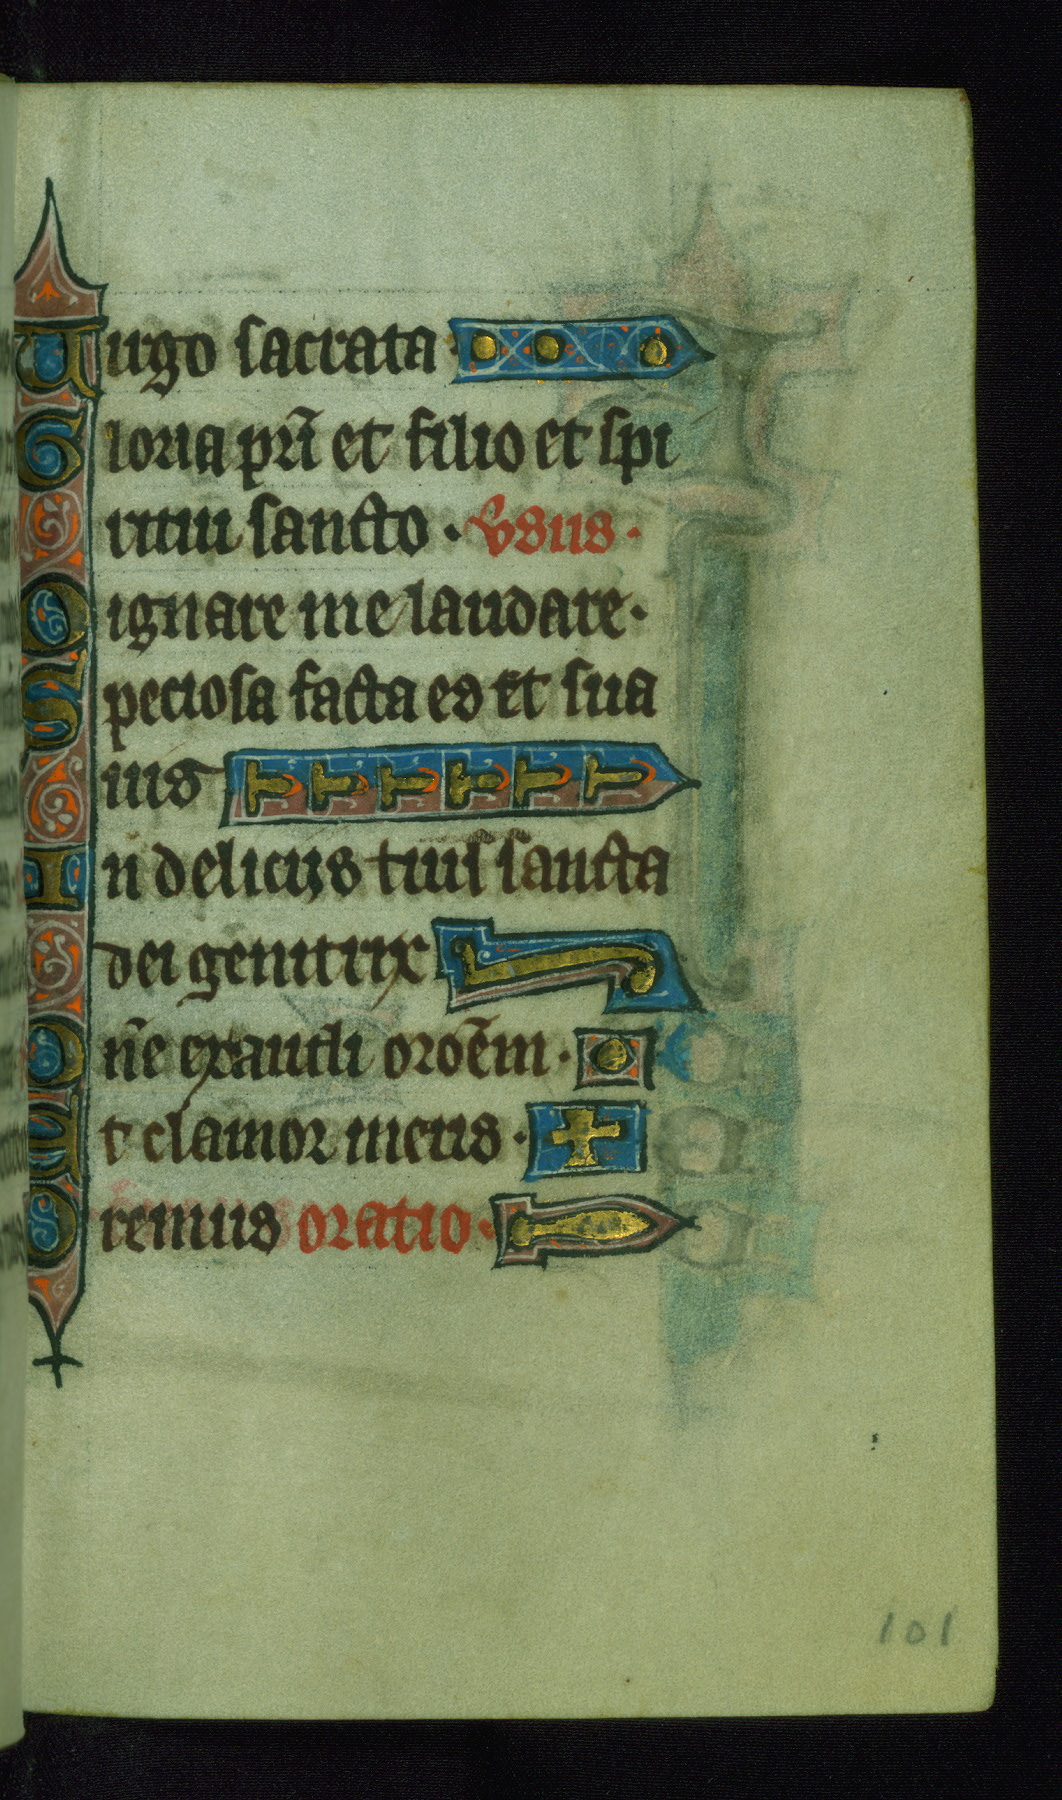 Uirgo sacrata·
Gloria pri et filio et spi
ritui sancto · vsus ·
Dignare me laudare·
Speciosa facta es et sua
uis
In deliciis tuis sancta
dei genitrix
Dñe exaudi oroēm·
Et clamor meus·
Oremus oratio·
101